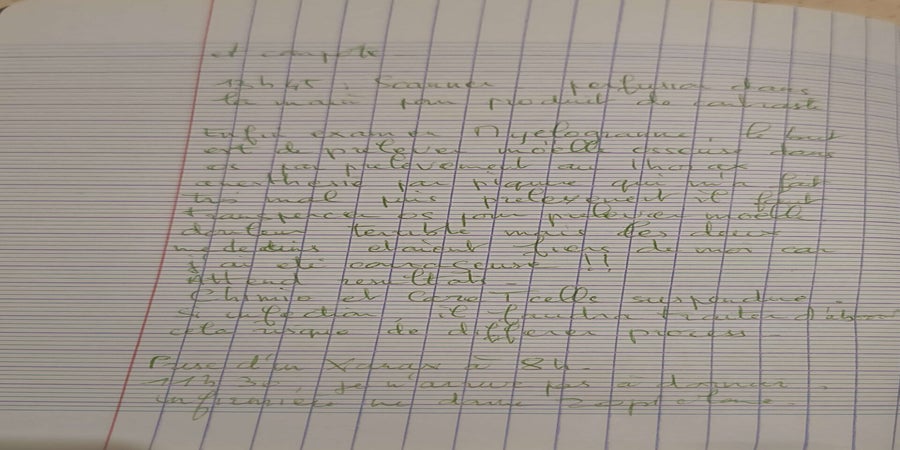 et compte
13h45 : Scanner perfusion dans
la main pour produit de contraste
Enfin examen Myelogramme, le but
est de prelever moëlle osseuse dans
os par prelevement au thorax
anesthésie par piqure qui m'a fait
tres mal puis prelevement il faut
transpercer os pour prelever moëlle
douleur terrible mais les deux
medecins etaient fiers de moi car
j'ai été courageuse !!
Attend resultats -
Chimio et Care T cells suspendue
Si infection, il faudra traiter d'abord
cela risque de differer process -
Prise d'un Xanax à 8h -
11h30, je n'arrive pas à dormir,
infirmière me donne Zopiclone -